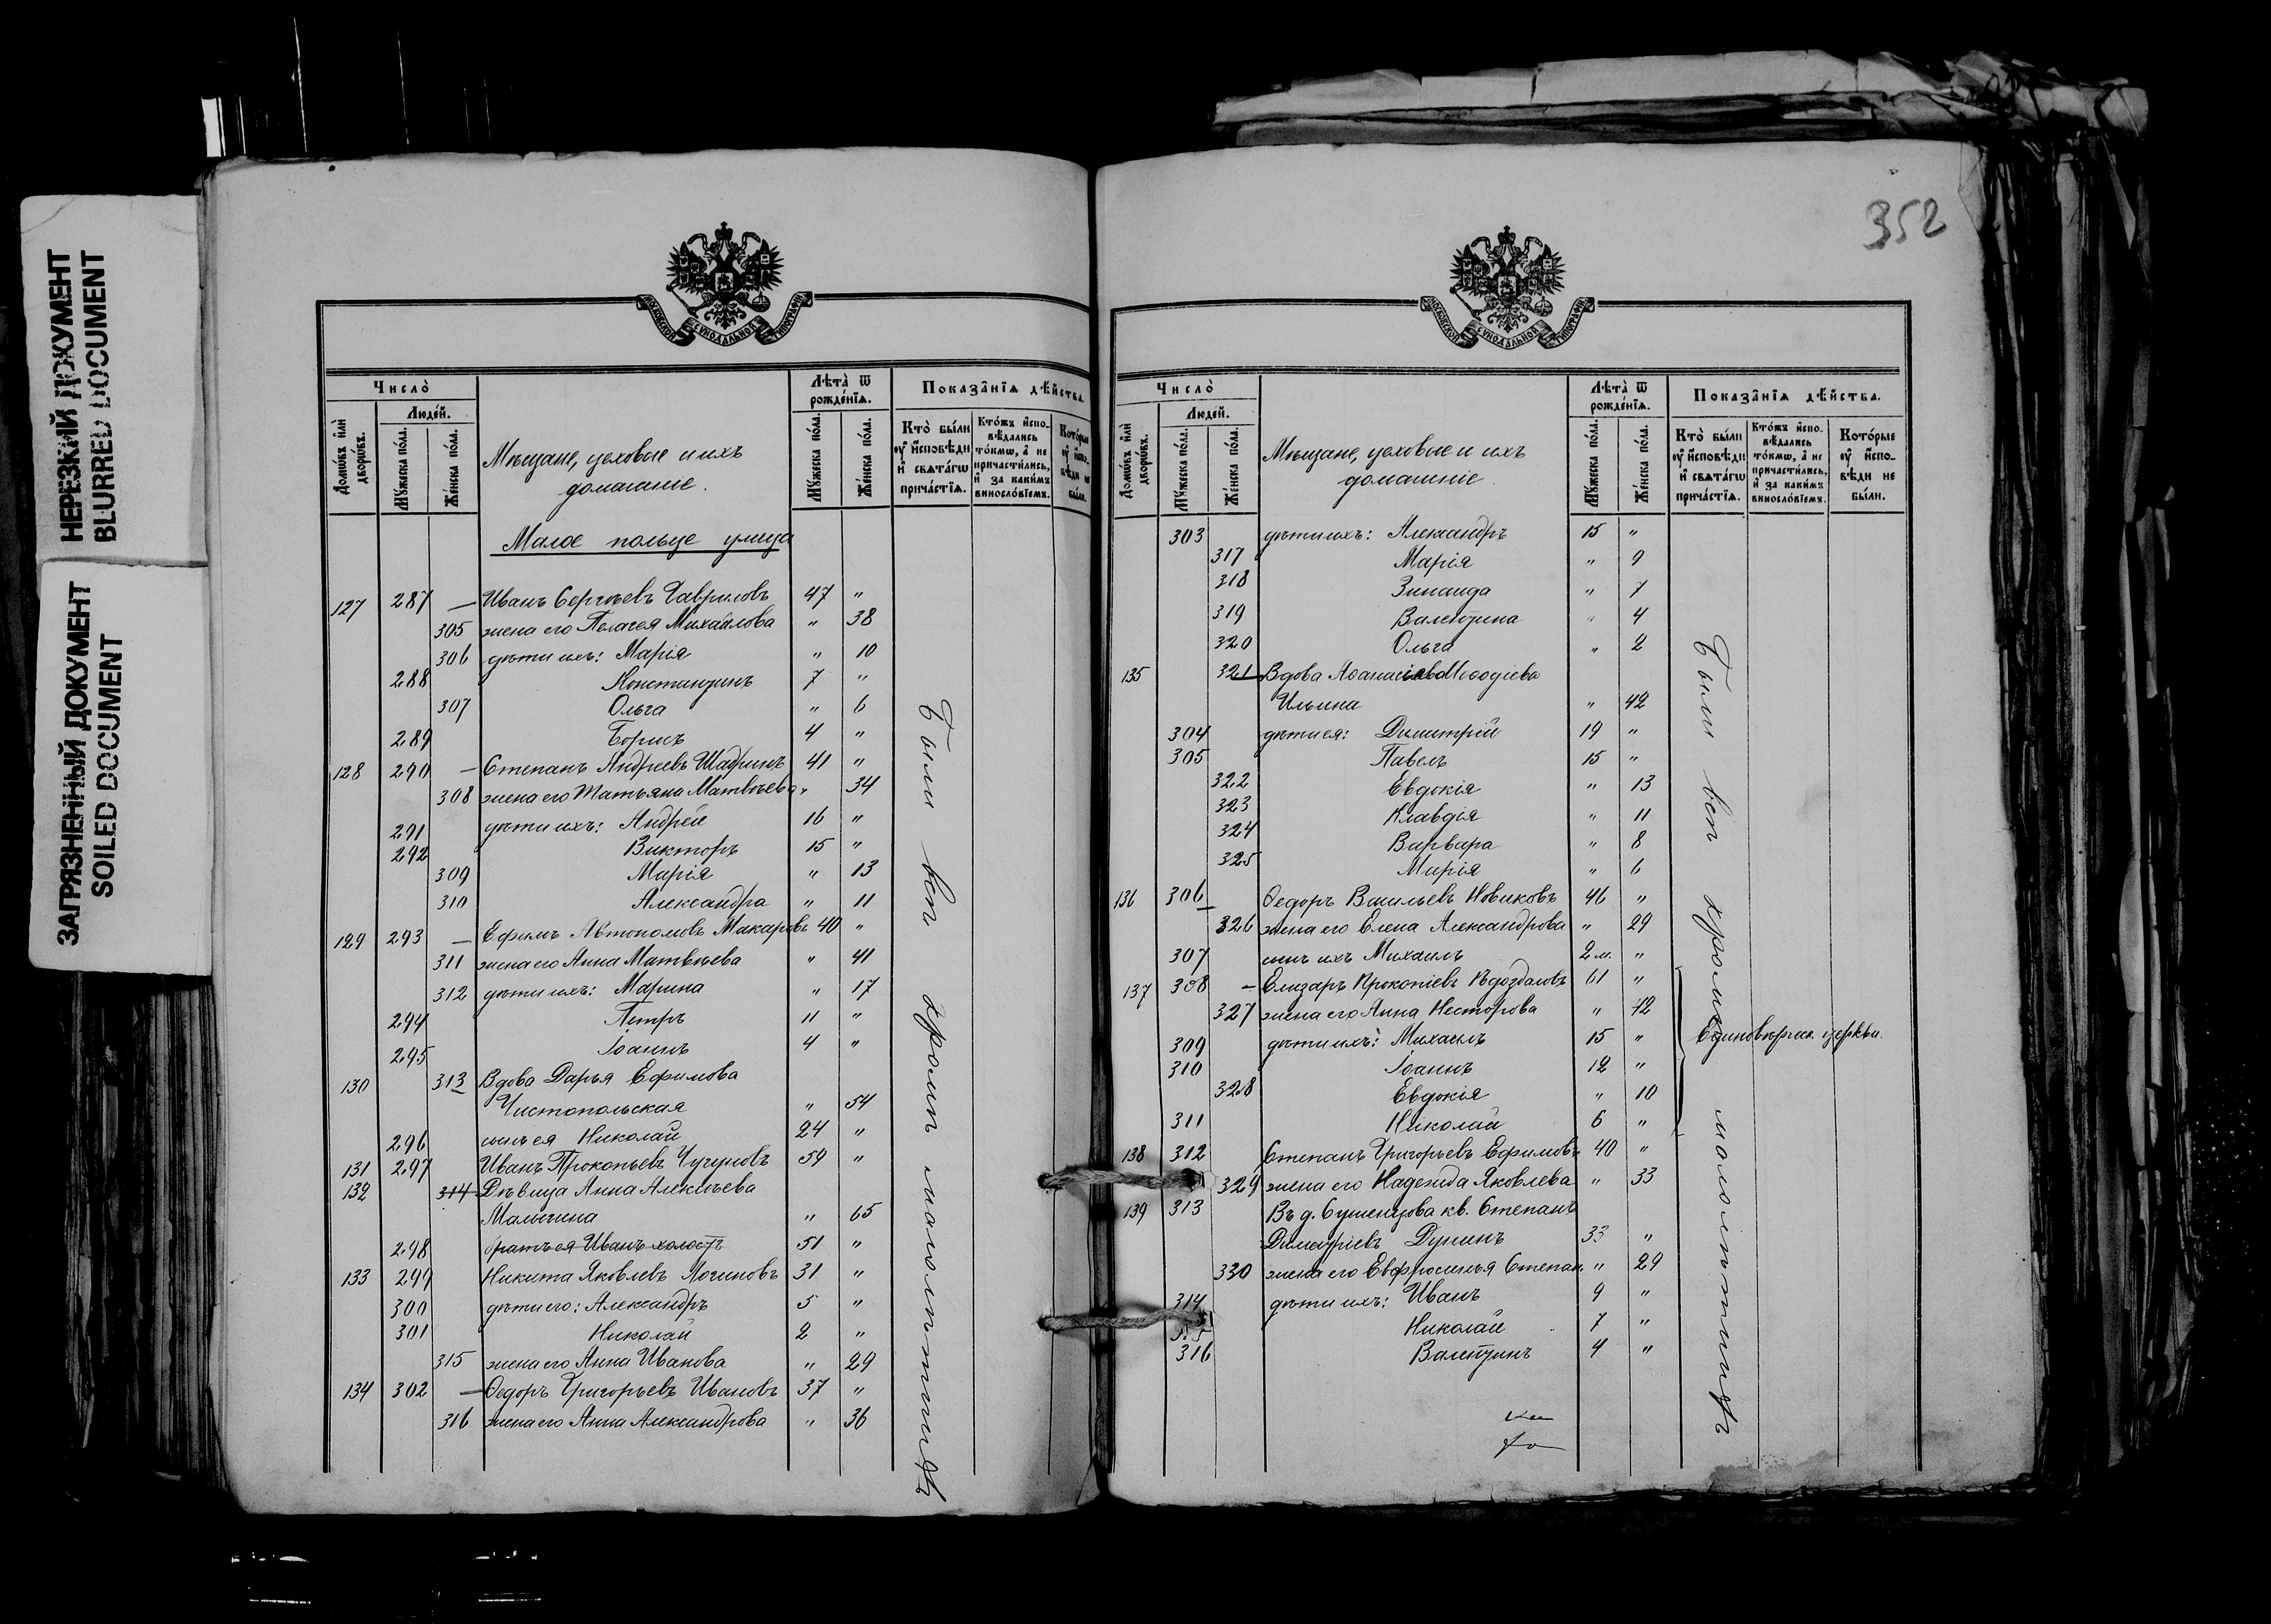 НЕРЕЗКИЙ ДОКУМЕНТ
BLURRED DOCUMENT
ЗАГРЯЗНЕННЫЙ ДОКУМЕНТ
SOILED DOCUMENT
МОСКОВСКОЙ СѴНОДАЛЬНОЙ ТИПОГРАФІИ
Число̀
Люде́й.
Домѡ́въ и҆лѝ дворѡ́въ.
Мꙋ́жеска по́ла.
Же́нска по́ла.
Мѣщане, цеховые и ихъ
домашніе.
Лѣта̀ ѿ рожде́нїѧ.
Мꙋ́жеска по́ла.
Же́нска по́ла.
Показа̑нїѧ дѣ́йства.
Кто̀ бы́ли ᲂу҆ и҆сповѣди и҆ свѧта́гѡ прича́стїѧ.
Кто́жъ и҆спо-вѣ́дались то́кмѡ, а҆ не причасти́лись, и҆ за каки́мъ винослѡ́вїемъ.
Кото́рые ᲂу҆ и҆спо-вѣди не бы́ли.
Малое польце улица
127 287 — Иванъ Сергѣевъ Гавриловъ 47 "
305 жена его Пелагея Михайлова " 38
306 дѣти ихъ: Марія " 10
288 Константинъ 7 "
307 Ольга " 6
289 Борисъ 4 "
128 290 — Степанъ Андреевъ Шадринъ 41 "
308 жена его Татьяна Матвѣева " 34
291 дѣти ихъ: Андрей 16 "
292 Викторъ 15 "
309 Марія " 13
310 Александра " 11
129 293 — Ефимъ Автономовъ Макаровъ 40 "
311 жена его Анна Матвѣева " 41
312 дѣти ихъ: Марина " 17
294 Петръ 11 "
295 Іоаннъ 4 "
130 313 Вдова Дарья Ефимова
Чистопольская " 54
296 сынъ ея Николай 24 "
131 297 Иванъ Прокопьевъ Чугуновъ 59 "
132 314 Дѣвица Анна Алексѣева
Малыгина " 65
298 братъ ея Иванъ холостъ 51 "
133 299 Никита Яковлевъ Логиновъ 31 "
300 дѣти его: Александръ 5 "
301 Николай 2 "
315 жена его Анна Иванова " 29
134 302 — Ѳедоръ Григорьевъ Ивановъ 37 "
316 жена его Анна Александрова " 36
Были всѣ кромѣ малолѣтнихъ
352
МОСКОВСКОЙ СѴНОДАЛЬНОЙ ТИПОГРАФІИ
Число̀
Люде́й.
Домѡ́въ и҆лѝ дворѡ́въ.
Мꙋ́жеска по́ла.
Же́нска по́ла.
Мѣщане, цеховые и ихъ
домашніе.
Лѣта̀ ѿ рожде́нїѧ.
Мꙋ́жеска по́ла.
Же́нска по́ла.
Показа̑нїѧ дѣ́йства.
Кто̀ бы́ли ᲂу҆ и҆сповѣди и҆ свѧта́гѡ прича́стїѧ.
Кто́жъ и҆спо-вѣ́дались то́кмѡ, а҆ не причасти́лись, и҆ за каки́мъ винослѡ́вїемъ.
Кото́рые ᲂу҆ и҆спо-вѣди не бы́ли.
303 дѣти ихъ: Александръ 15 "
317 Марія " 9
318 Зинаида " 7
319 Валентина " 4
320 Ольга " 2
135 321 Вдова Меѳодіева
Ильина " 42
304 дѣти ея: Димитрій 19 "
305 Павелъ 15 "
322 Евдокія " 13
323 Клавдія " 11
324 Варвара " 8
325 Марія " 6
136 306 Ѳедоръ Васильевъ Новиковъ 46 "
326 жена его Елена Александрова " 29
307 сынъ ихъ Михаилъ 2 м. "
137 308 — Елизаръ Прокопіевъ 61 "
327 жена его Анна Несторова " 42
309 дѣти ихъ: Михаилъ 15 "
310 Іоаннъ 12 "
328 Евдокія " 10
311 Николай 6 "
Единовѣрческ. церкви.
138 312 Степанъ Григорьевъ Ефимовъ 40 "
329 жена его Надежда Яковлева " 33
139 313 Въ д. Сушенцова кв. Степанъ
Димитріевъ Дунинъ 33 "
330 жена его Евфросинья Степан. " 29
314 дѣти ихъ: Иванъ 9 "
315 Николай 7 "
316 Валентинъ 4 "
Были всѣ кромѣ малолѣтнихъ